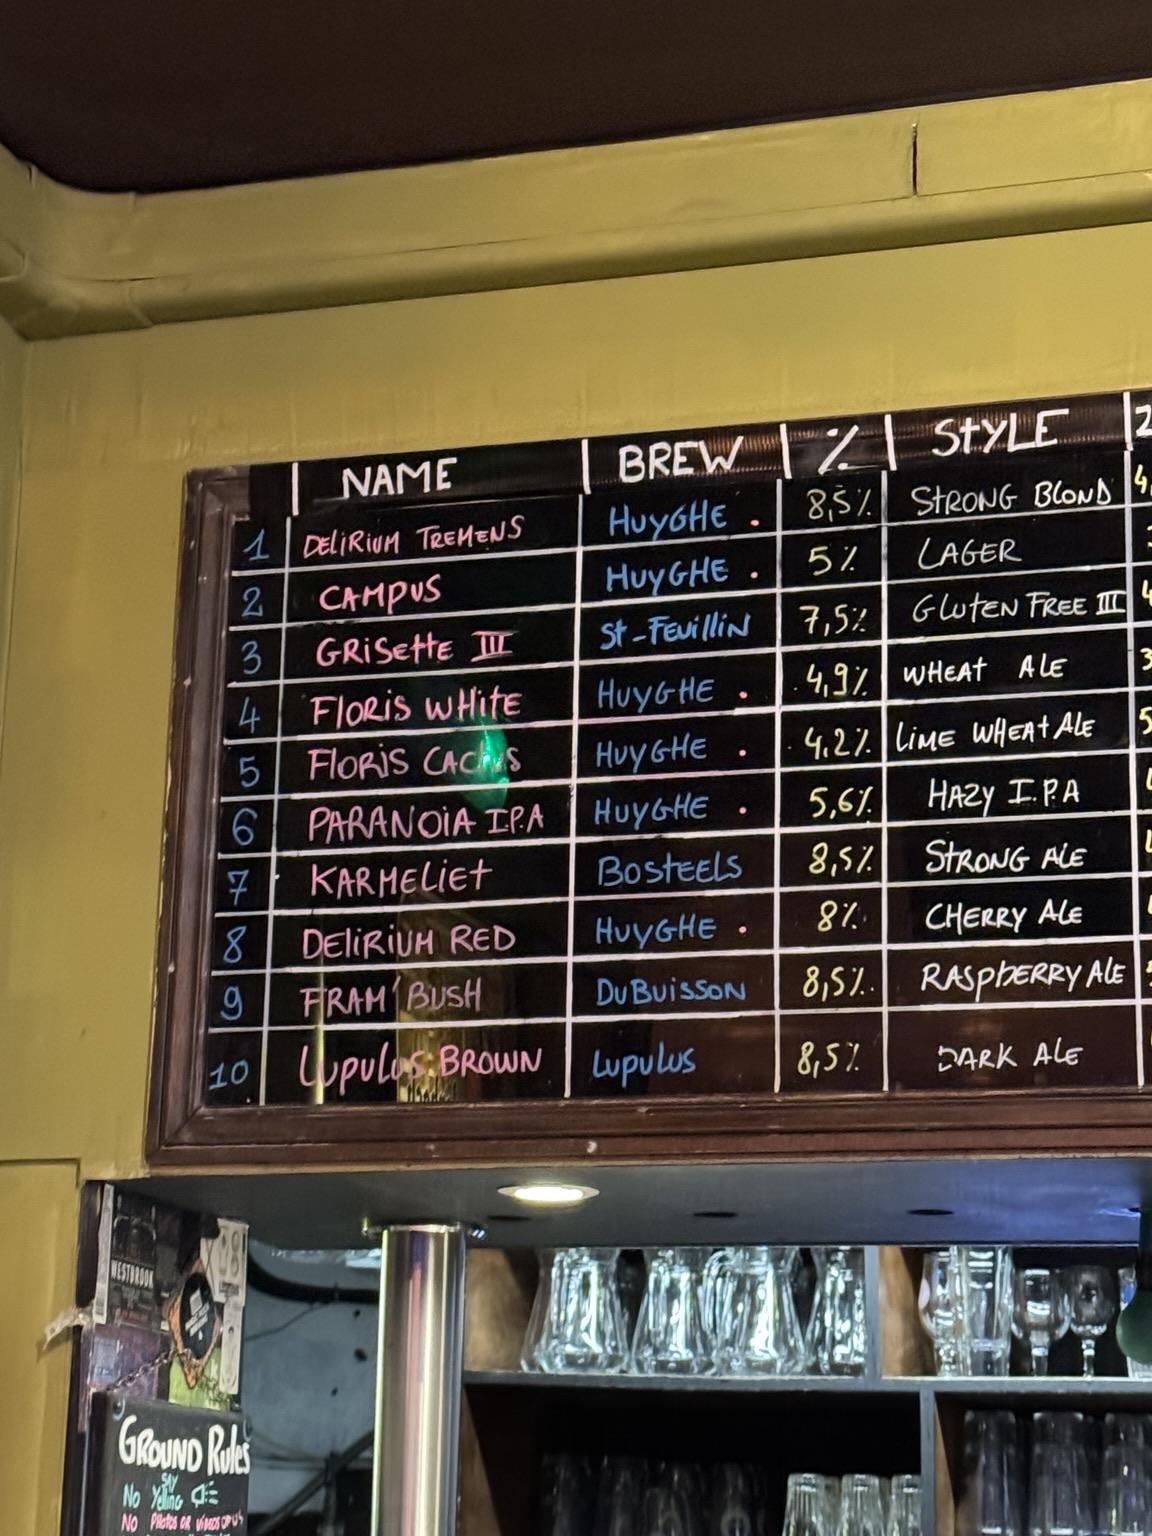 NAME BREW % STYLE 2
1 DELIRIUM TREMENS HUYGHE . 8,5% STRONG BLOND 4,
2 CAMPUS HUYGHE . 5% LAGER
3 GRISETTE III ST-FEUILLIN 7,5% GLUTEN FREE III 4
4 FLORIS WHITE HUYGHE . 4,9% WHEAT ALE 3
5 FLORIS CACTUS HUYGHE . 4.2% LIME WHEAT ALE 5
6 PARANOIA I.P.A HUYGHE . 5,6% HAZY I.P.A
7 KARMELIET BOSTEELS 8,5% STRONG ALE
8 DELIRIUM RED HUYGHE . 8% CHERRY ALE
9 FRAM' BUSH DUBUISSON 8,5% RASPBERRY ALE
10 LUPULUS BROWN LUPULUS 8,5% DARK ALE
WESTBROOK
GROUND RULES
SAY
No Yelling
NO PHOTOS OR VIDEOS OF US